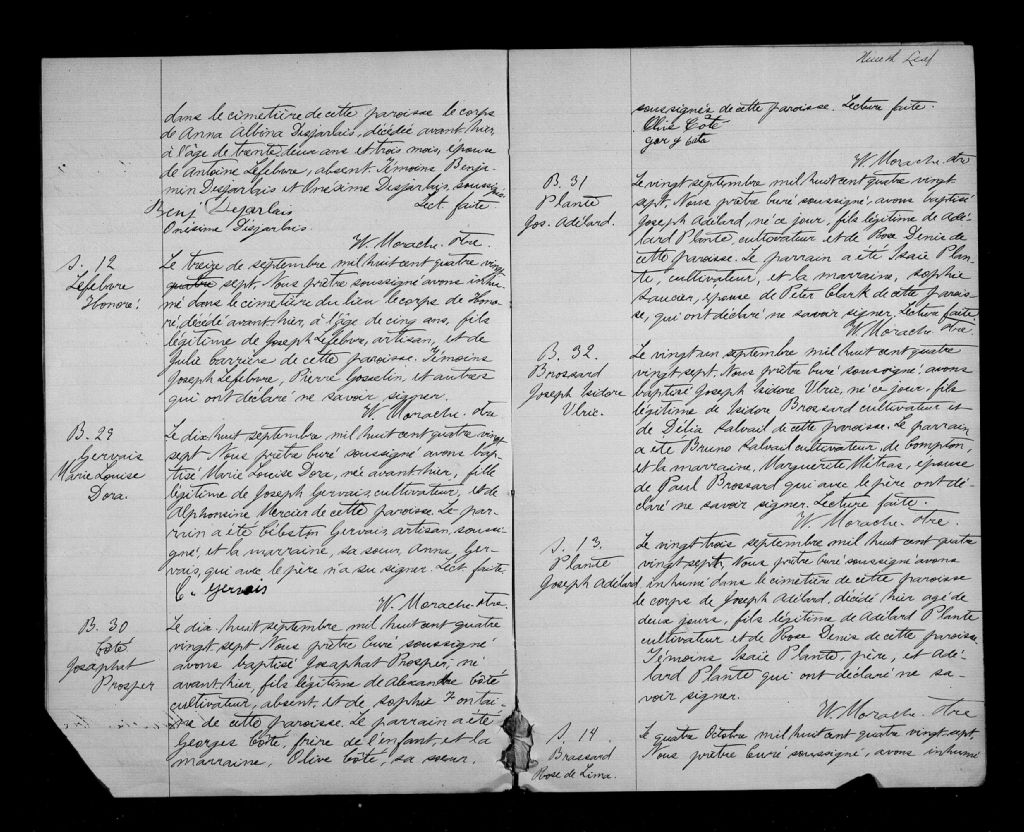 dans le cimetière de cette paroisse le corps
de Anna Albina Desjarlais, décédée avant hier,
à l'âge de trente deux ans et trois mois, épouse
de Antoine Lefebvre, absent. Témoins Benja-
min Desjarlais et Onésime Desjarlais, soussignés
Lect. faite
Benj Dejarlais
Onisime Disjarlais.
W. Morache. Ptre.
S. 12
Lefebvre
Honoré.
Le treize de septembre mil huit cent quatre vingt
quatre sept. Nous prêtre soussigné avons inhu-
mé dans le cimetière du lieu le corps de Hono-
ré, décédé avant hier, à l'âge de cinq ans, fils
légitime de Joseph Lefebvre, artisan, et de
Julie barrière de cette paroisse. Témoins
Joseph Lefebvre, Pierre Gosselin, et autres
qui ont déclaré ne savoir signer.
W. Morache. Ptre
B. 29
Gervais
Marie Louise
Dora.
Le dix huit septembre mil huit cent quatre vingt
sept. Nous prêtre curé soussigné avons bap-
tisé Marie Louise Dora, née avant hier, fille
légitime de Joseph Gervais, cultivateur, et de
Alphonsine Mercier de cette paroisse. Le par-
rain a été Gervais, artisan, soussi-
gné, et la marraine, sa sœur, Anna, Ger-
vais, qui avec le père n'a su signer. Lect. faite.
C. Gervais
W. Morache. Ptre.
B. 30
Côté
Josaphat
Prosper
Le dix huit septembre mil huit cent quatre
vingt sept Nous prêtre curé soussigné
avons baptisé Josaphat Prosper, né
avant hier, fils légitime de Alexandre Côté
cultivateur, absent, et de Sophie Fontai-
ne de cette paroisse. Le parrain a été
Georges Côté, frère de l'enfant, et la
marraine, Olive Côté, sa sœur.
Leaf
soussignés de cette paroisse. Lecture faite.
Olivé Côté
W. Morache. Ptre
B. 31
Plante
Jos. Adélard.
Le vingt septembre mil huit cent quatre vingt
sept. Nous prêtre curé soussigné, avons baptisé
Joseph Adélard, né ce jour, fils légitime de Adé-
lard Plante, cultivateur et de Rose Denis de
cette paroisse. Le parrain a été Isaie Plan-
te, cultivateur, et la marraine, Sophie
Saucier, épouse de Peter Clark de cette parois-
se, qui ont déclaré ne savoir signer. Lecture faite
W. Morache. Ptre.
B. 32.
Brossard
Joseph Isidore
Ulric.
Le vingt un septembre mil huit cent quatre
vingt sept. Nous prêtre curé soussigné, avons
baptisé Joseph Isidore Ulric, né ce jour, fils
légitime de Isidore Brossard cultivateur et
de Délia Salvail de cette paroisse. Le parrain
a été Bruno Salvail cultivateur de Compton,
et la marraine, Marguerite Mitras, épouse
de Paul Brossard qui avec le père ont dé-
claré ne savoir signer. Lecture faite.
W. Morache. Ptre.
S. 13.
Plante
Joseph Adélard
Le vingt trois septembre mil huit cent quatre
vingt sept. Nous prêtre curé soussigné avons
inhumé dans le cimetière de cette paroisse
le corps de Joseph Adélard, décédé hier agé de
deux jours, fils légitime de Adélard Plante
cultivateur et de Rose Denis de cette paroisse.
Témoins Isaie Plante, père, et Adé-
lard Plante qui ont déclaré ne sa-
voir signer.
W. Morache. Ptre
S. 14.
Brassard
Rose de Lima.
Le quatre Octobre mil huit cent quatre vingt sept.
Nous prêtre curé, soussigné, avons inhumé